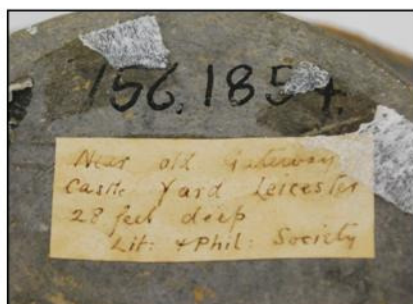 156.1854.
Near old Gateway
Castle Yard Leicester
28 feet deep
Lit: & Phil: Society